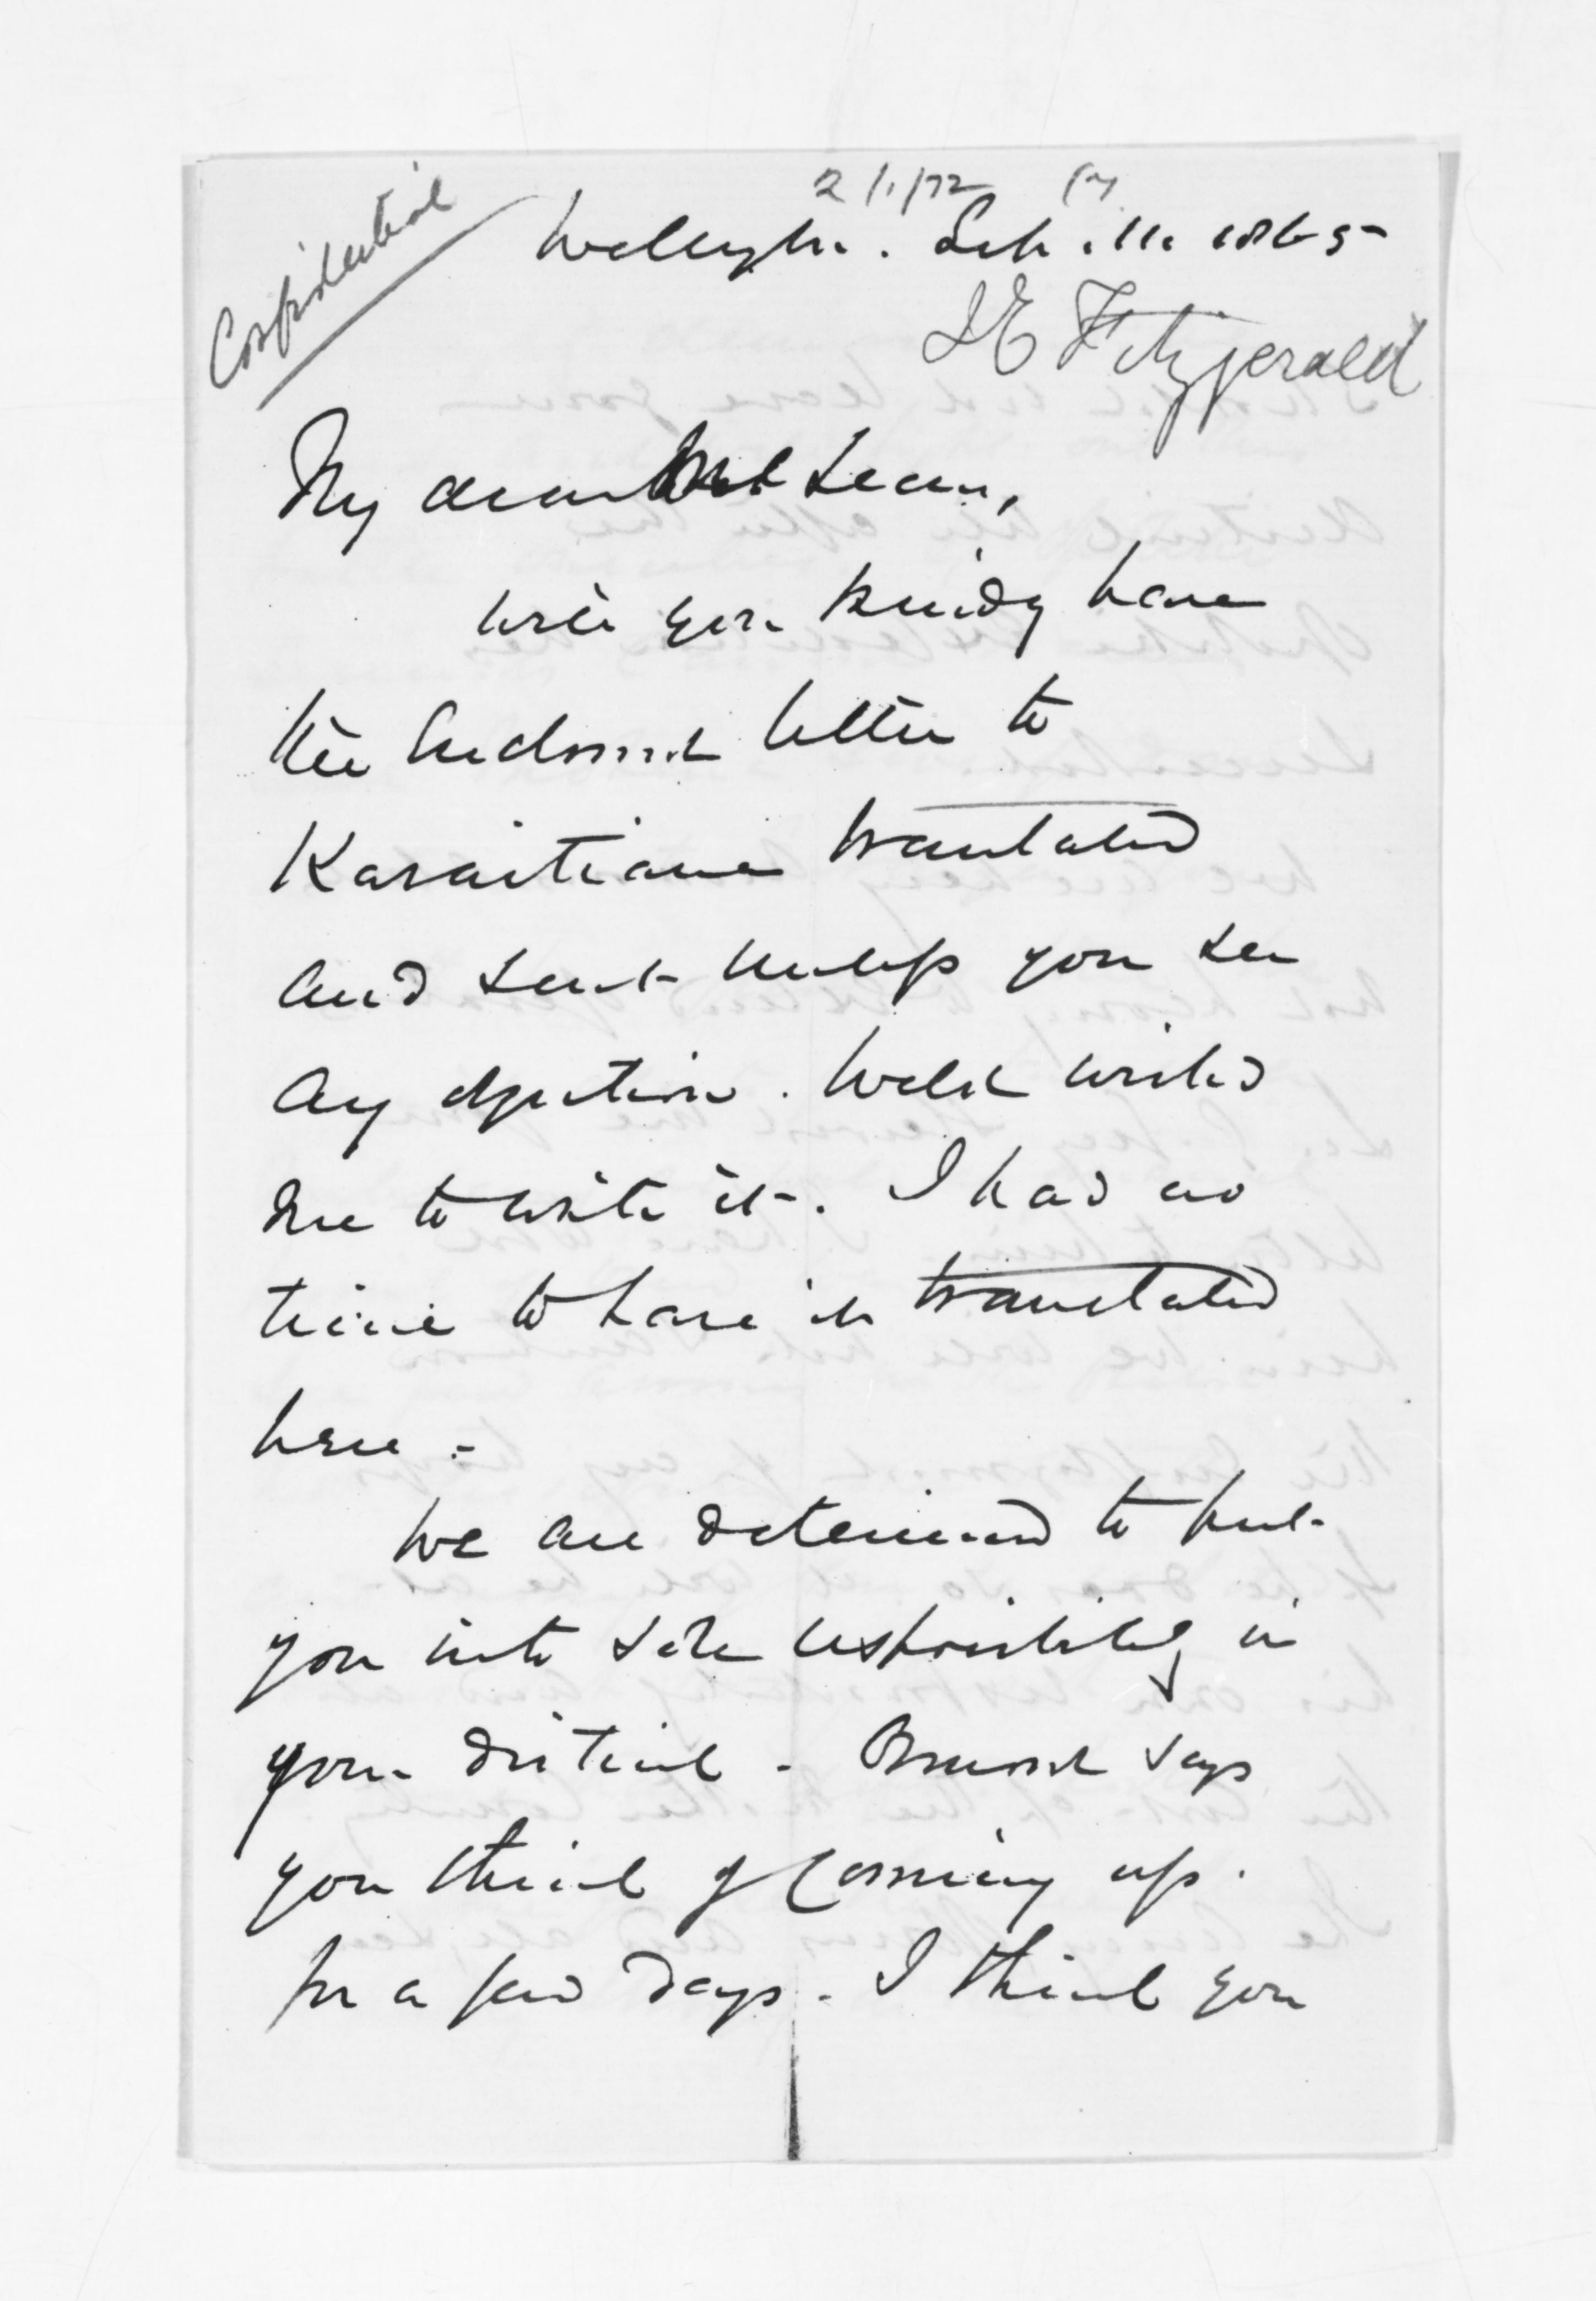 Confidential
Wellington. Sep. 11. 1865
J E Fitzgerald
My dear McLean,
Will you kindly have
the enclosed letter to
Karaitiana translated
and sent unless you see
any objection. Weld wished
me to write it. I had no
time to have it translated
here.
We are determined to put
you into sole responsibility in
your district. Ormond says
you think of coming up
for a few days. I think you